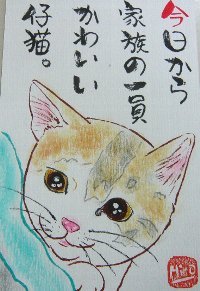 今日から
家族の一員
かわいい
仔猫。